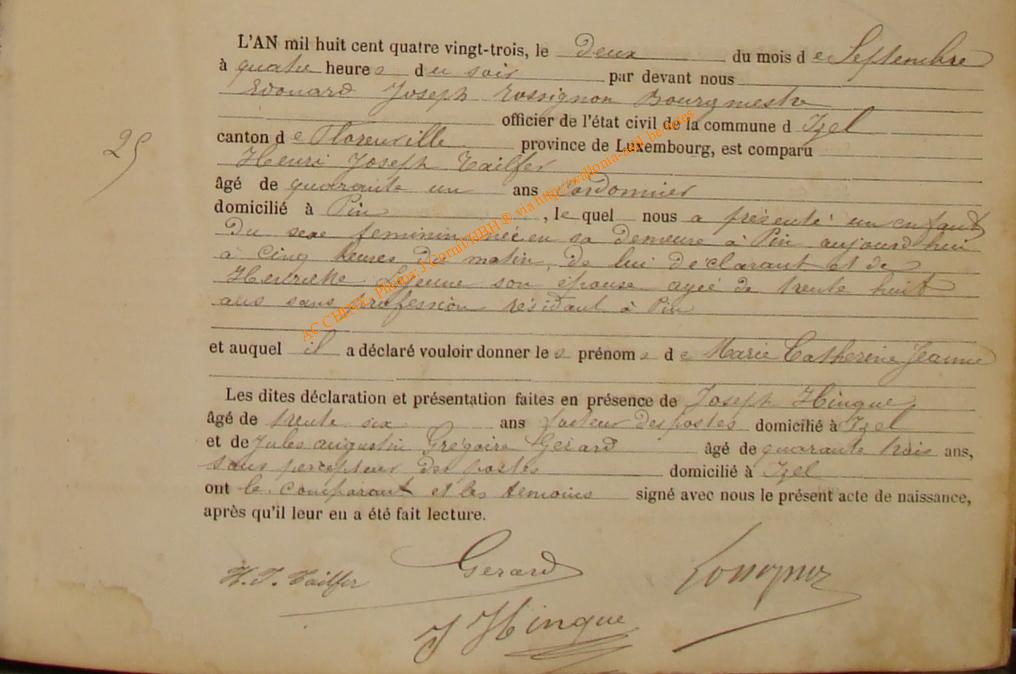 L'AN mil huit cent quatre vingt-trois, le deux du mois de Septembre
à quatre heures du soir par devant nous
Edouard Joseph Rossignon Bourgmestre
officier de l'état civil de la commune d Izel
canton de Florenville province de Luxembourg, est comparu
Henri Joseph Tailfer
âgé de quarante un ans Cordonnier
domicilié à Pin, lequel nous a présenté un enfant
du sexe feminin née en sa demeure à Pin aujourd'hui
à cinq heures du matin, de lui déclarant et de
Henriette son épouse agée de trente huit
ans sans profession résidant à Pin
et auquel il a déclaré vouloir donner les prénoms de Marie Catherine Jeanne
Les dites déclaration et présentation faites en présence de Joseph Hinque
âgé de trente six ans facteur des postes domicilié à Izel
et de Jules augustin Grégoire Gerard âgé de quarante trois ans,
sous percepteur des postes domicilié à Izel
ont le comparant et les témoins signé avec nous le présent acte de naissance,
après qu'il leur en a été fait lecture.
25
H. J. Tailfer
Gerard
J Hinque